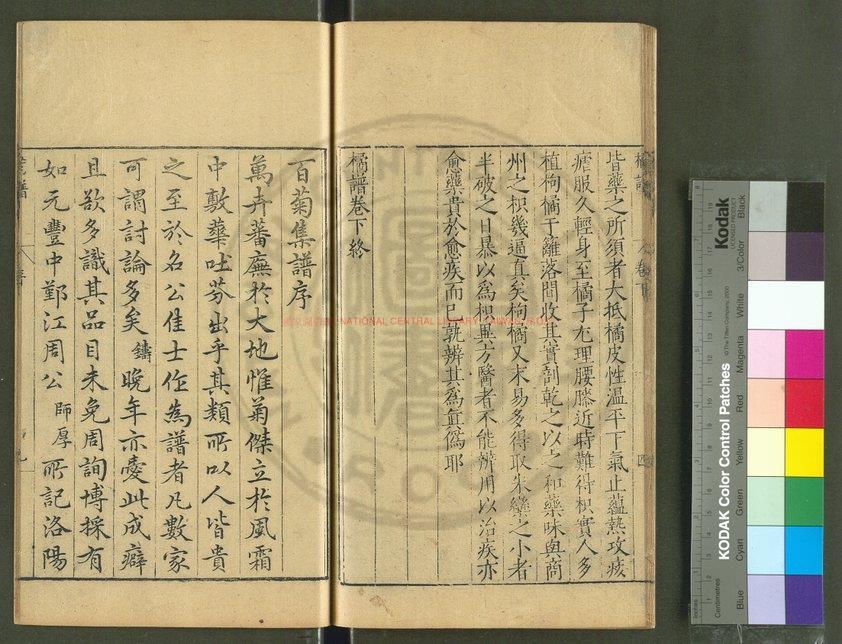 皆藥之所須者大抵橘皮性溫平下氣止蘊熱攻痰
瘧服久輕身至橘子尤理腰膝近時難得枳實人多
植枸橘于籬落間收其實剖乾之以之和藥味與商
州之枳幾逼真矣枸橘又未易多得取朱欒之小者
半破之日暴以為枳異方醫者不能辨用以治疾亦
愈藥貴於愈疾而已孰辨其為真偽耶
橘譜卷下終
百菊集譜序
萬卉蕃廡於大地惟菊傑立於風霜
中敷華吐芬出乎其類所以人皆貴
之至於名公佳士作為譜者凡數家
可謂討論多矣鑄晚年亦愛此成癖
且欲多識其品目未免周詢博採有
如元豐中鄞江周公師厚所記洛陽
NATIONAL CENTRAL LIBRARY
KODAK Color Control Patches
Kodak
LICENSED PRODUCT
© The Tiffen Company, 2000
Centimetres
Inches
Blue
Cyan
Green
Yellow
Red
Magenta
White
3/Color
Black